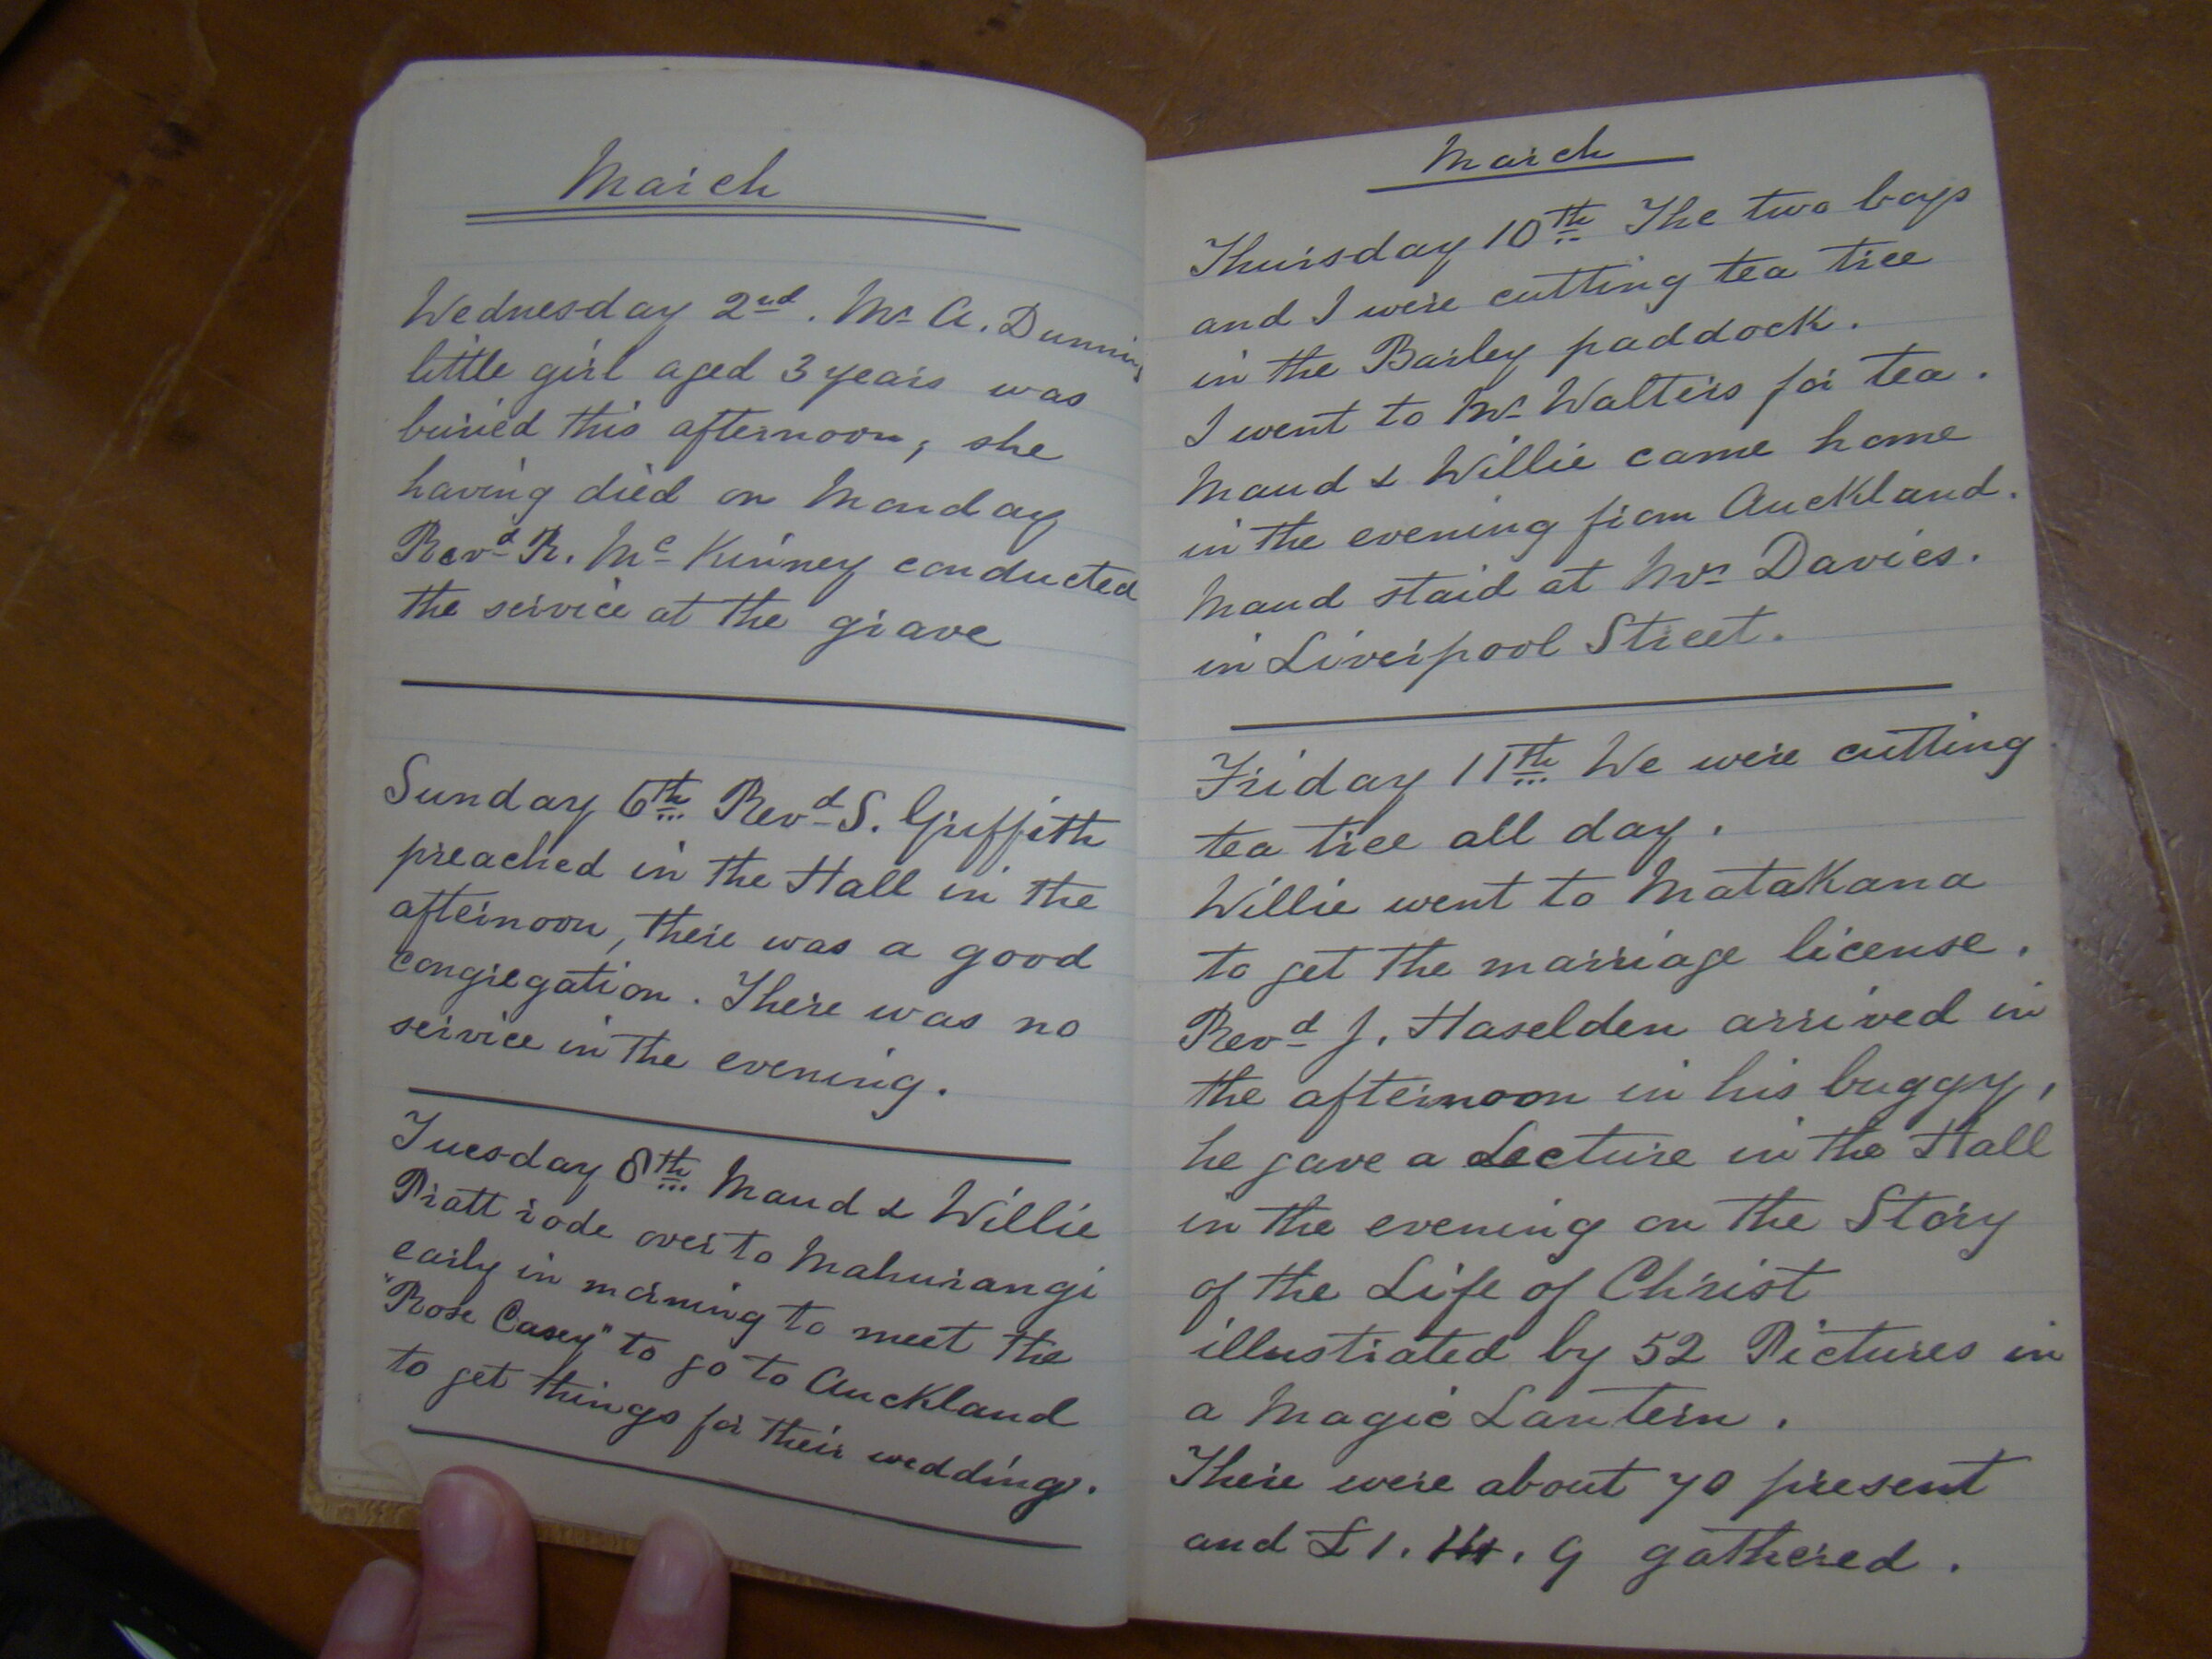 March
Wednesday 2nd. Mr A. Dunning
little girl aged 3 years was
buried this afternoon, she
having died on Monday
Revd R. Mc Kinney conducted
the service at the grave
Sunday 6th Revd S. Griffith
preached in the Hall in the
afternoon, there was a good
congregation. There was no
service in the evening.
Tuesday 8th Maud & Willie
Pratt rode over to Mahurangi
early in morning to meet the
"Rose Casey" to go to Auckland
to get things for their wedding.
March
Thursday 10th The two boys
and I were cutting tea tree
in the Barley paddock.
I went to Mr Walters for tea.
Maud & Willie came home
in the evening from Auckland.
Maud staid at Mrs Davies.
in Liverpool Street.
Friday 11th We were cutting
tea tree all day.
Willie went to Matakana
to get the marriage license.
Revd J. Haselden arrived in
the afternoon in his buggy,
he gave a Lecture in the Hall
in the evening on the Story
of the Life of Christ
illustrated by 52 Pictures in
a Magic Lantern.
There were about 70 present
and £1. 14. 9 gathered.